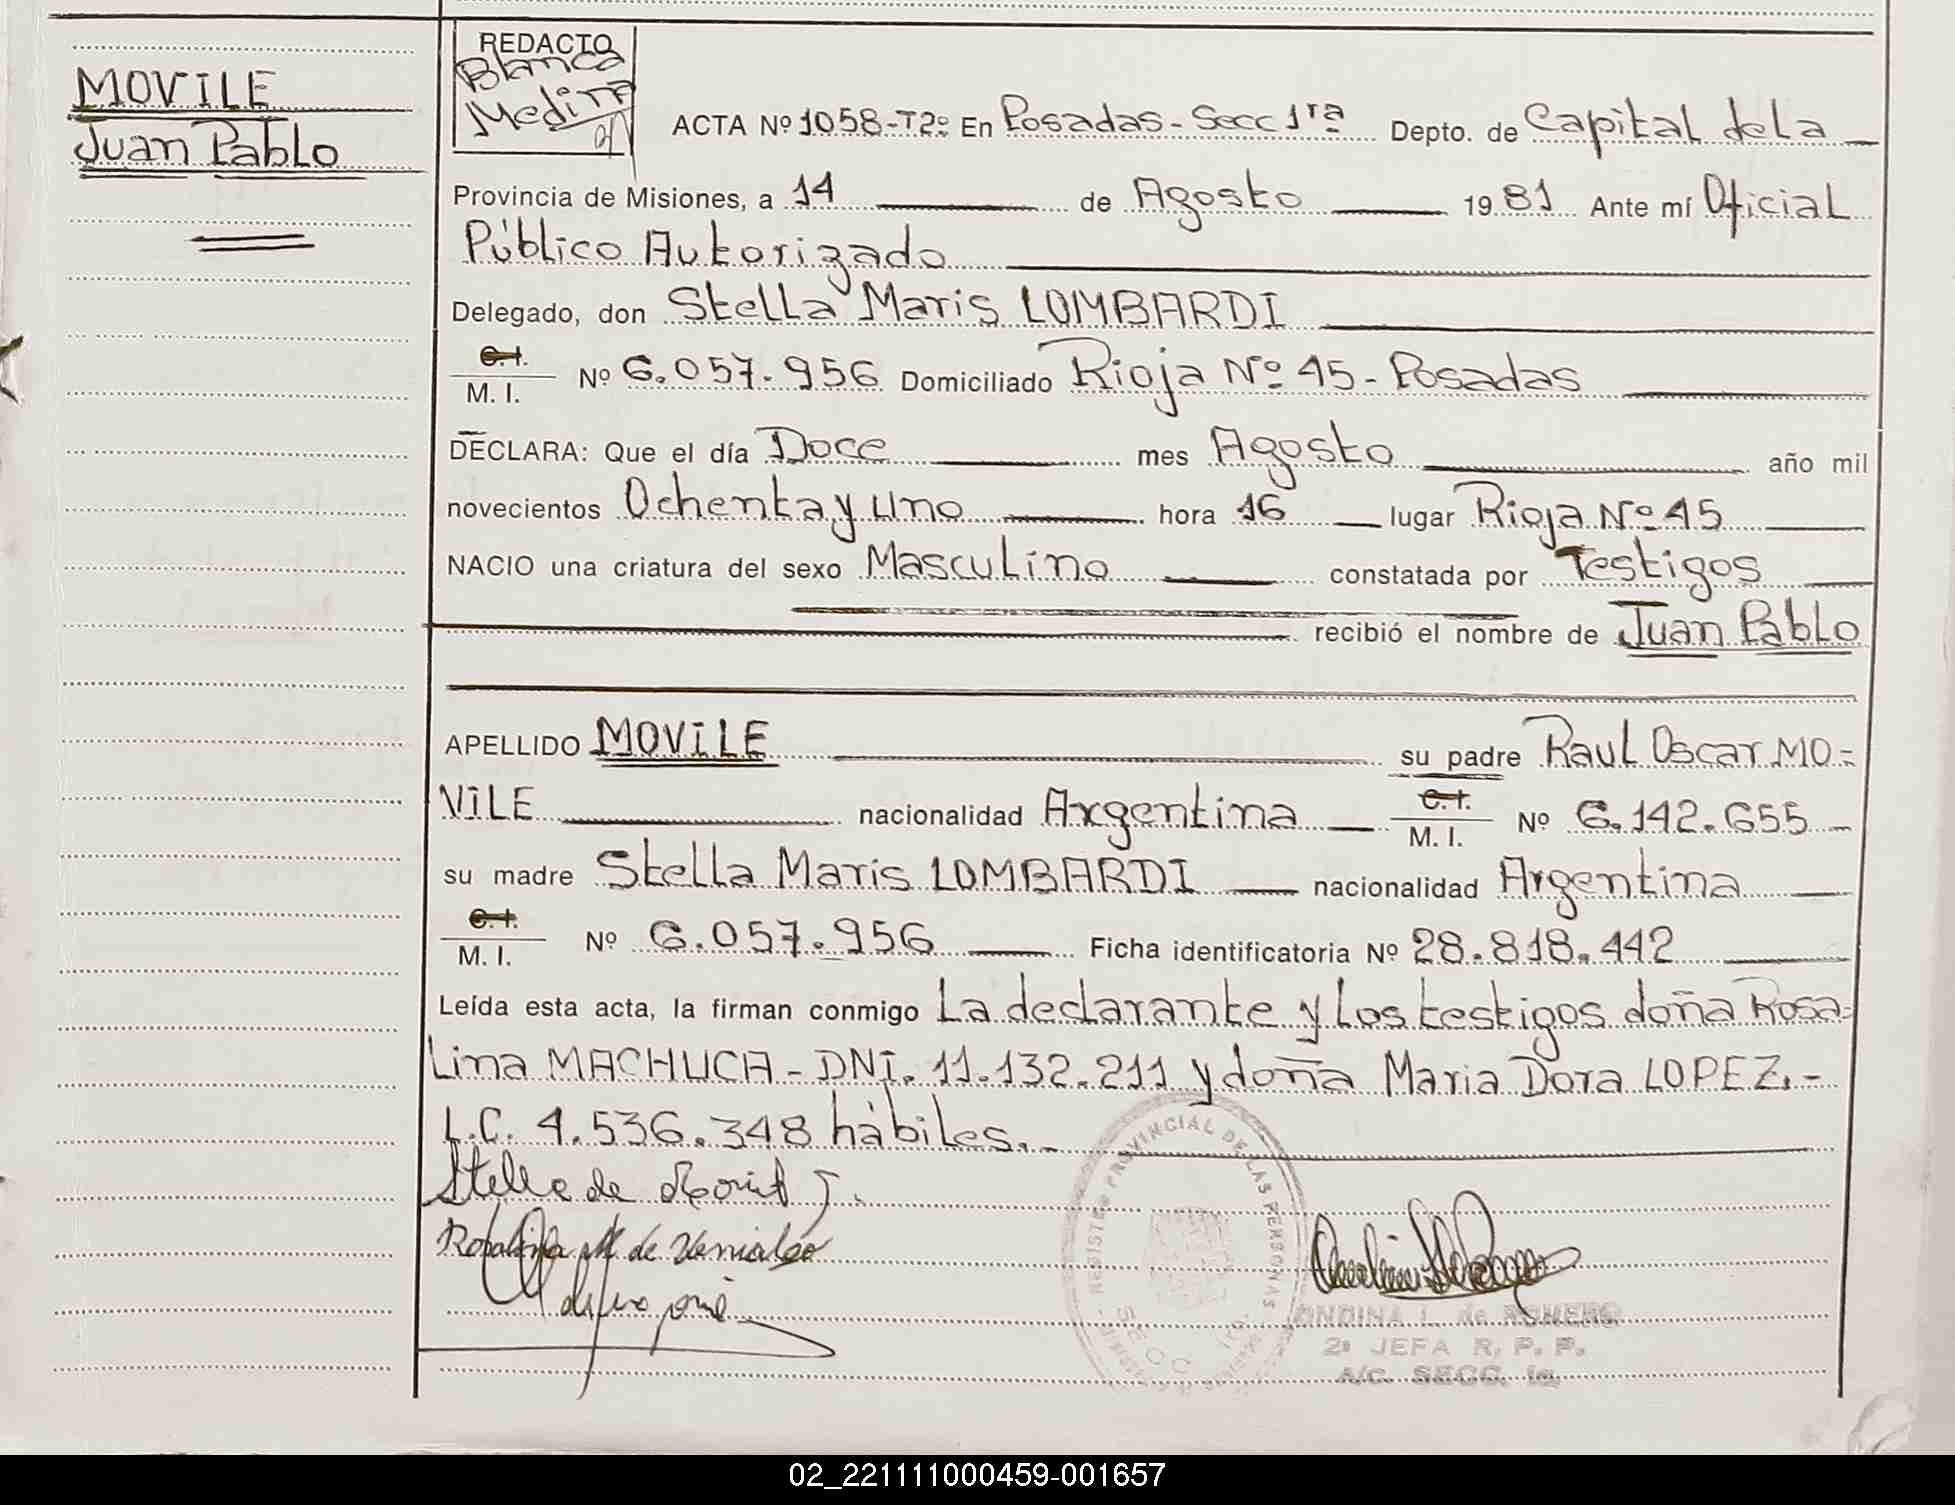 MOVILE
Juan Pablo
REDACTO
Blanca
Medina
ACTA Nº 1058-Tº2º En Posadas - Secc 1ra Depto. de Capital de La
Provincia de Misiones, a 14 de Agosto 1981 Ante mí Oficial
Público Autorizado
Delegado, don Stella Maris LOMBARDI
C.I.
M. I. Nº 6.057.956 Domiciliado Rioja Nº 45 - Posadas
DECLARA: Que el día Doce mes Agosto año mil
novecientos Ochenta y uno hora 16 lugar Rioja Nº 45
NACIO una criatura del sexo Masculino constatada por Testigos
recibió el nombre de Juan Pablo
APELLIDO MOVILE su padre Raul Oscar MO=
VILE nacionalidad Argentina C.I. M. I. Nº 6.142.655
su madre Stella Maris LOMBARDI nacionalidad Argentina
C.I.
M. I. Nº 6.057.956 Ficha identificatoria Nº 28.818.442
Leída esta acta, la firman conmigo La declarante y Los testigos doña Rosa=
Lina MACHUCA - DNI. 11.132.211 y doña Maria Dora LOPEZ.-
L.C. 4.536.348 hábiles.
REGISTRO PROVINCIAL DE LAS PERSONAS
SECC 1ra
ONDINA L. de ROMERO
2ª JEFA R. P. P.
A/C. SECC. 1a.
02_221111000459-001657